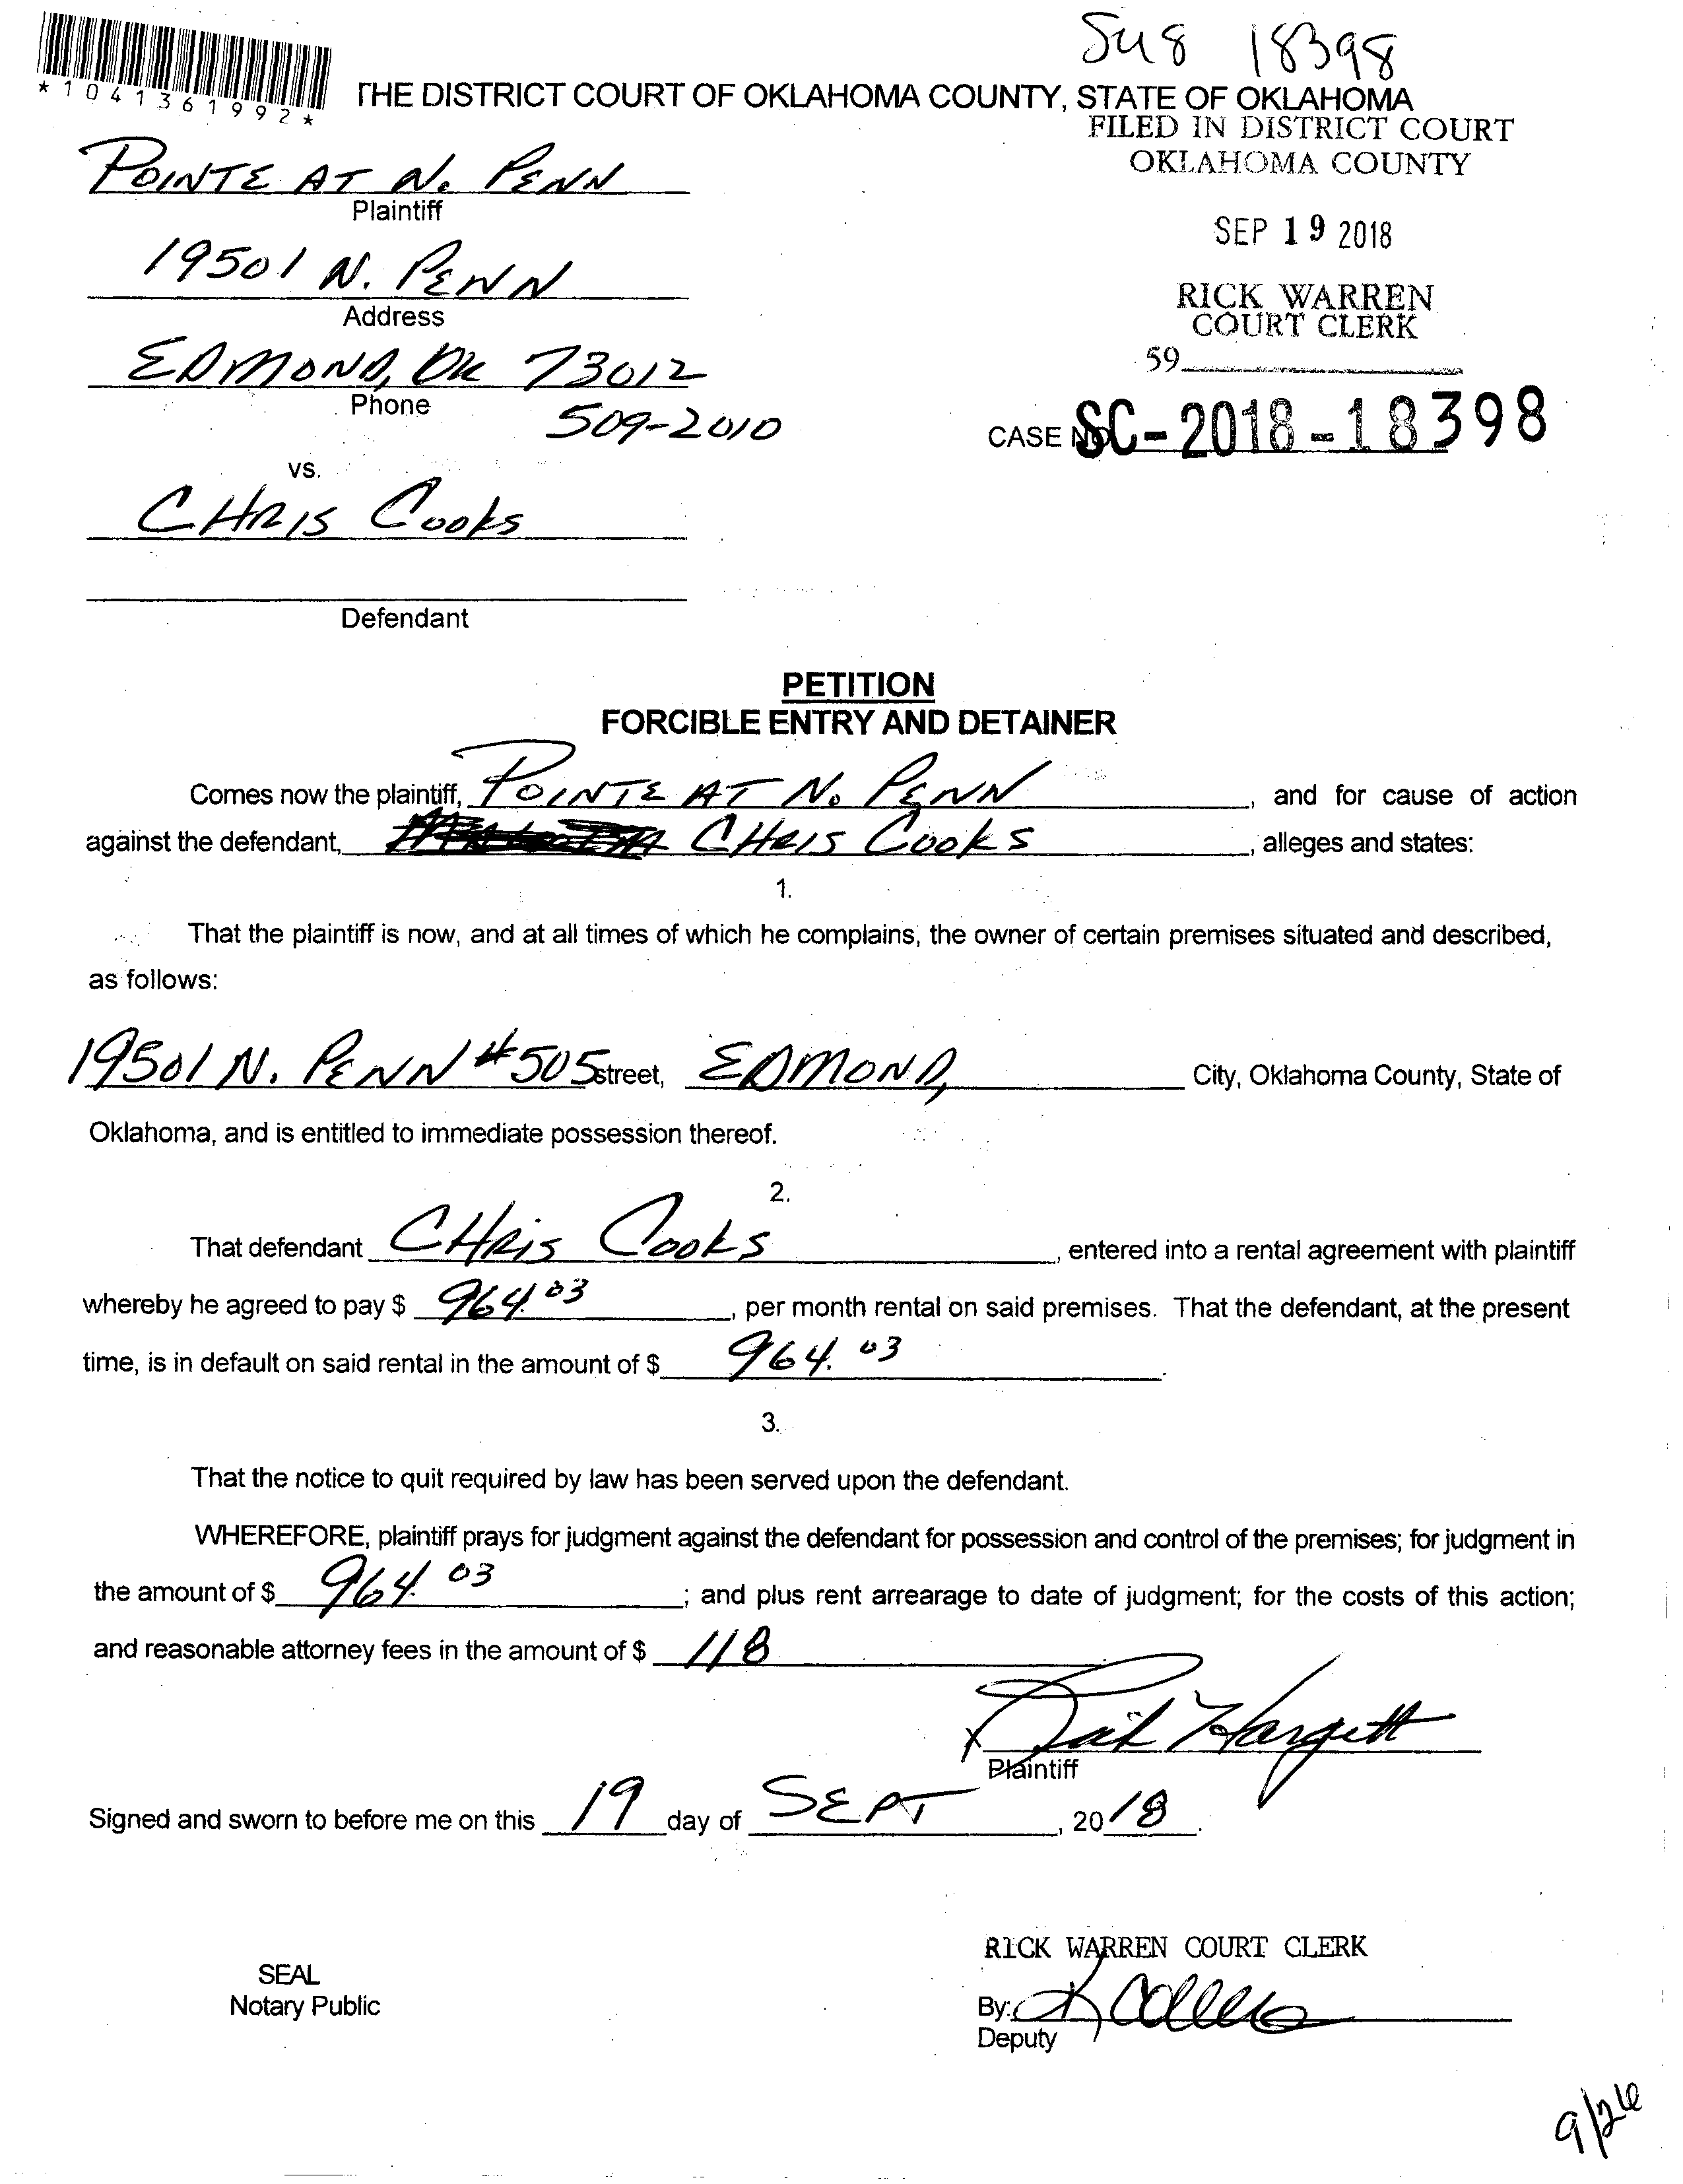 Su8 18398
*1041361992*
THE DISTRICT COURT OF OKLAHOMA COUNTY, STATE OF OKLAHOMA
FILED IN DISTRICT COURT
OKLAHOMA COUNTY
POINTE AT N. PENN
Plaintiff
SEP 19 2018
19501 N. PENN
Address
RICK WARREN
COURT CLERK
EDMOND, OK 73012
59
Phone
509-2010
CASE NO. SC-2018-18398
vs.
CHRIS Cooks
Defendant
PETITION
FORCIBLE ENTRY AND DETAINER
Comes now the plaintiff, POINTE AT N. PENN, and for cause of action
against the defendant, CHRIS Cooks, alleges and states:
1.
That the plaintiff is now, and at all times of which he complains, the owner of certain premises situated and described,
as follows:
19501 N. PENN #505 street, EDMOND, City, Oklahoma County, State of
Oklahoma, and is entitled to immediate possession thereof.
2.
That defendant CHRis Cooks, entered into a rental agreement with plaintiff
whereby he agreed to pay $ 964.03, per month rental on said premises. That the defendant, at the present
time, is in default on said rental in the amount of $ 964.03.
3.
That the notice to quit required by law has been served upon the defendant.
WHEREFORE, plaintiff prays for judgment against the defendant for possession and control of the premises; for judgment in
the amount of $ 964.03; and plus rent arrearage to date of judgment; for the costs of this action;
and reasonable attorney fees in the amount of $ 118
X Hargett
Plaintiff
Signed and sworn to before me on this 19 day of SEPT, 2018.
RICK WARREN COURT CLERK
SEAL
Notary Public
By:
Deputy
9/26